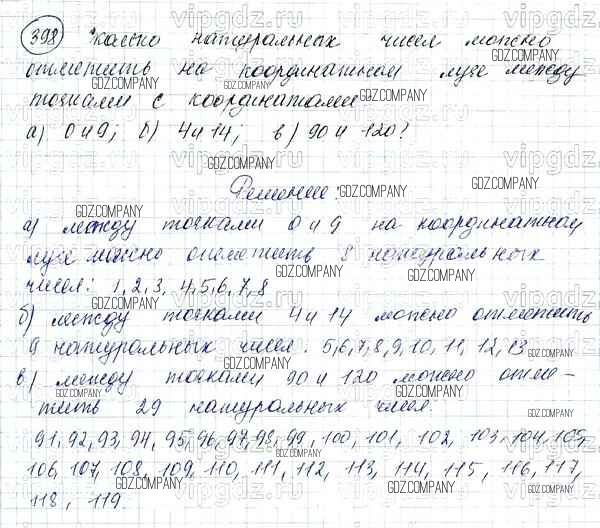 398 Сколько натуральных чисел можно
отметить на координатном луче между
точками с координатами
а) 0 и 9; б) 4 и 14; в) 90 и 120?
Решение:
а) между точками 0 и 9 на координатном
луче можно отметить 8 натуральных
чисел: 1, 2, 3, 4, 5, 6, 7, 8
б) между точками 4 и 14 можно отметить
9 натуральных чисел: 5, 6, 7, 8, 9, 10, 11, 12, 13
в) между точками 90 и 120 можно отме-
тить 29 натуральных чисел:
91, 92, 93, 94, 95, 96, 97, 98, 99, 100, 101, 102, 103, 104, 105,
106, 107, 108, 109, 110, 111, 112, 113, 114, 115, 116, 117,
118, 119.